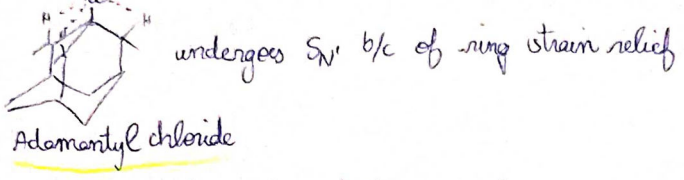 H H
undergoes SN' b/c of ring strain relief
Adamantyl chloride